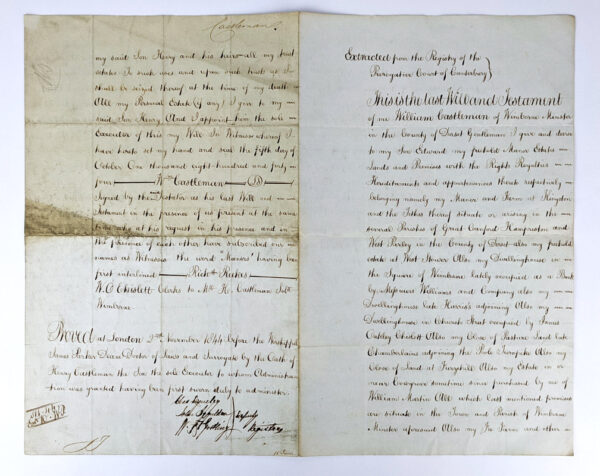 Castleman
my said Son Henry and his heirs all my trust
estates To such uses and upon such trusts as I
shall be seized thereof at the time of my death
All my Personal Estate (if any) I give to my
said Son Henry And I appoint him the sole
Executor of this my Will In Witness whereof I
have hereto set my hand and seal the fifth day of
October One thousand eight hundred and forty
four Wm Castleman
Signed by the Testator as his last Will and
Testament in the presence of us present at the same
time who at his request in his presence and in
the presence of each other have subscribed our
names as Witnesses the word Manors having been
first interlined Richd
W. C. Chislett Clerks to Mr H. Castleman Solr
Wimborne
Proved at London 2nd November 1844 before the Worshipful
James Parker Deane Doctor of Laws and Surrogate by the Oath of
Henry Castleman the Son the sole Executor to whom Administra
tion was granted having been first sworn duly to administer
Deputy
Registers
Extracted from the Registry of the
Prerogative Court of Canterbury
This is the last Will and Testament
of me William Castleman of Wimborne Minster
in the County of Dorset Gentleman I give and devise
to my Son Edward my freehold Manor Estates
Lands and Premises with the Rights Royalties
Hereditaments and appurtenances thereto respectively
belonging namely my Manor and Farm at Knighton
and the Tithes thereof situate or arising in the
several Parishes of Great Canford Hampreston and
West Parley in the County of Dorset also my freehold
estate at West Howe Also my Dwellinghouse in
the Square of Wimborne lately occupied as a Bank
by Messieurs Williams and Company also my
Dwellinghouse late Harris's adjoining Also my
Dwellinghouse in Church Street occupied by James
Oakley Chislett Also my Close of Pasture Land late
Chamberlains adjoining the Poole Turnpike Also my
Close of Land at Furzehill Also my Estate in or
near Cowgrove sometime since purchased by me of
William Martin All which last mentioned premises
are situate in the Town and Parish of Wimborne
Minster aforesaid Also my Farm and other